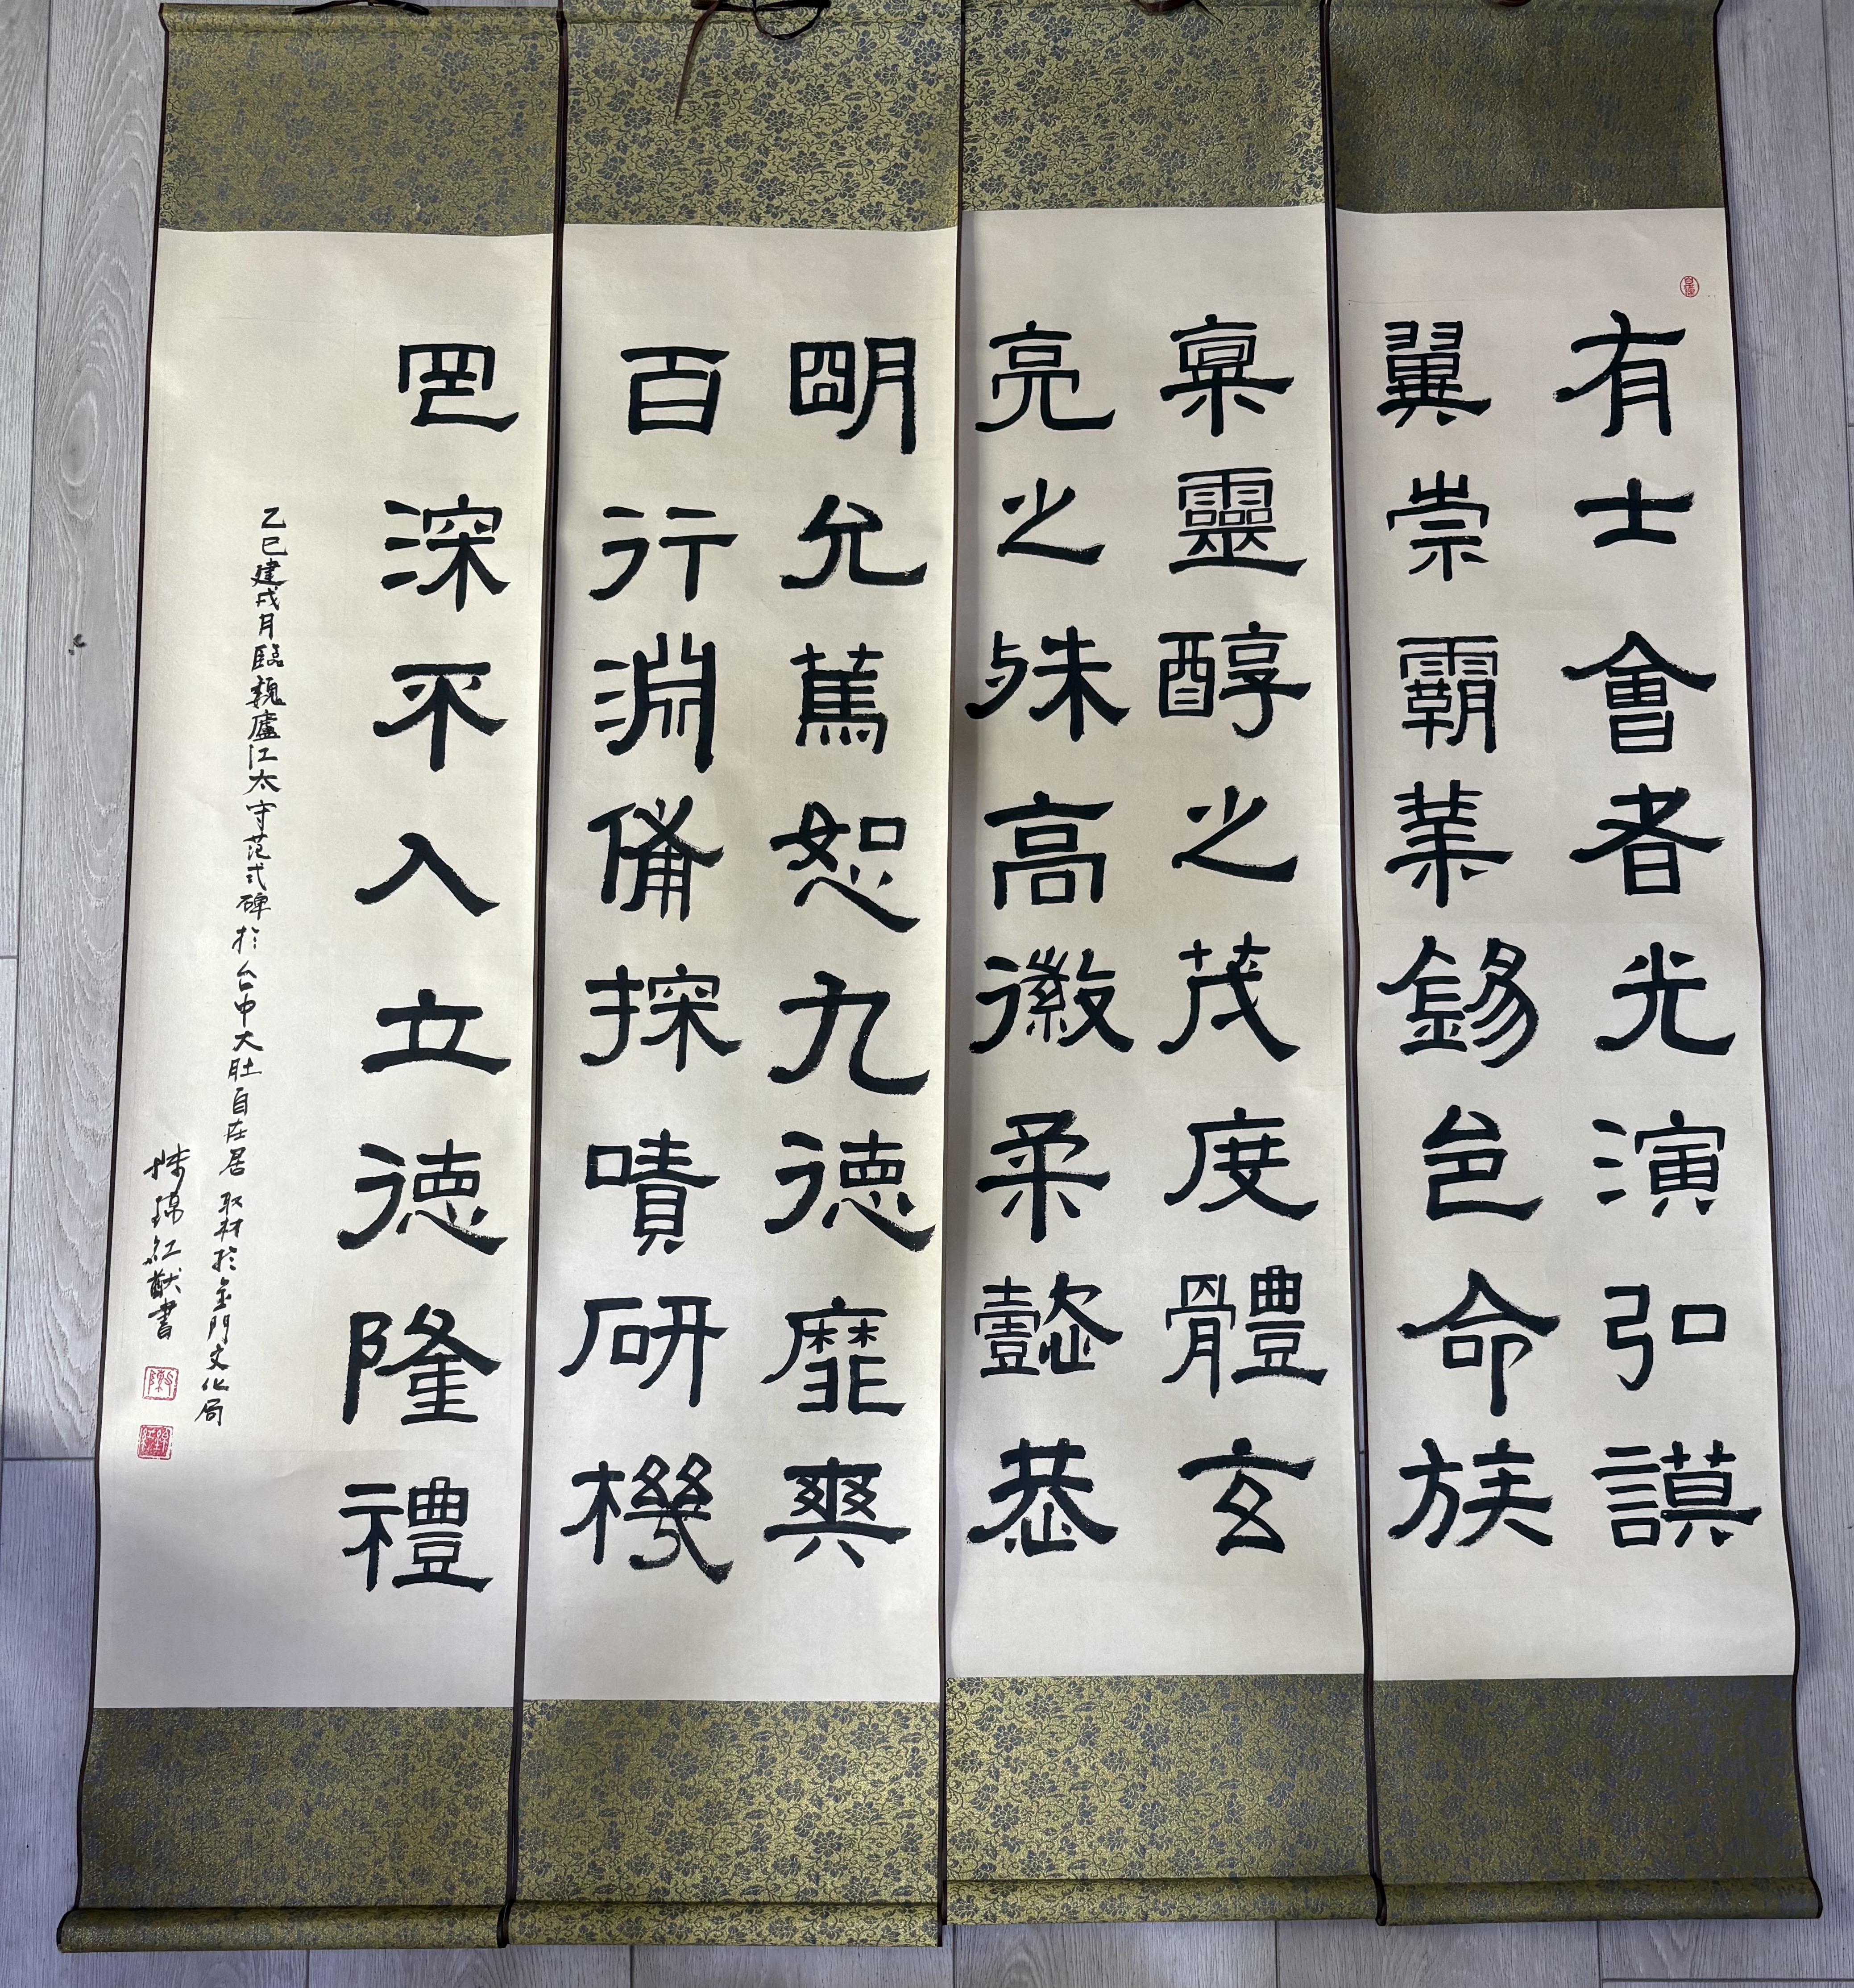 有士會者光演弘謨
翼崇霸業錫邑命族
稟靈醇之茂度體玄
亮之殊高徽柔懿恭
明允篤恕九德靡爽
百行淵備探嘖研機
罔深不入立德隆禮
乙巳建戌月臨魏廬江太守范式碑於台中大肚自在居 取材於金門文化局
陳錦紅敬書